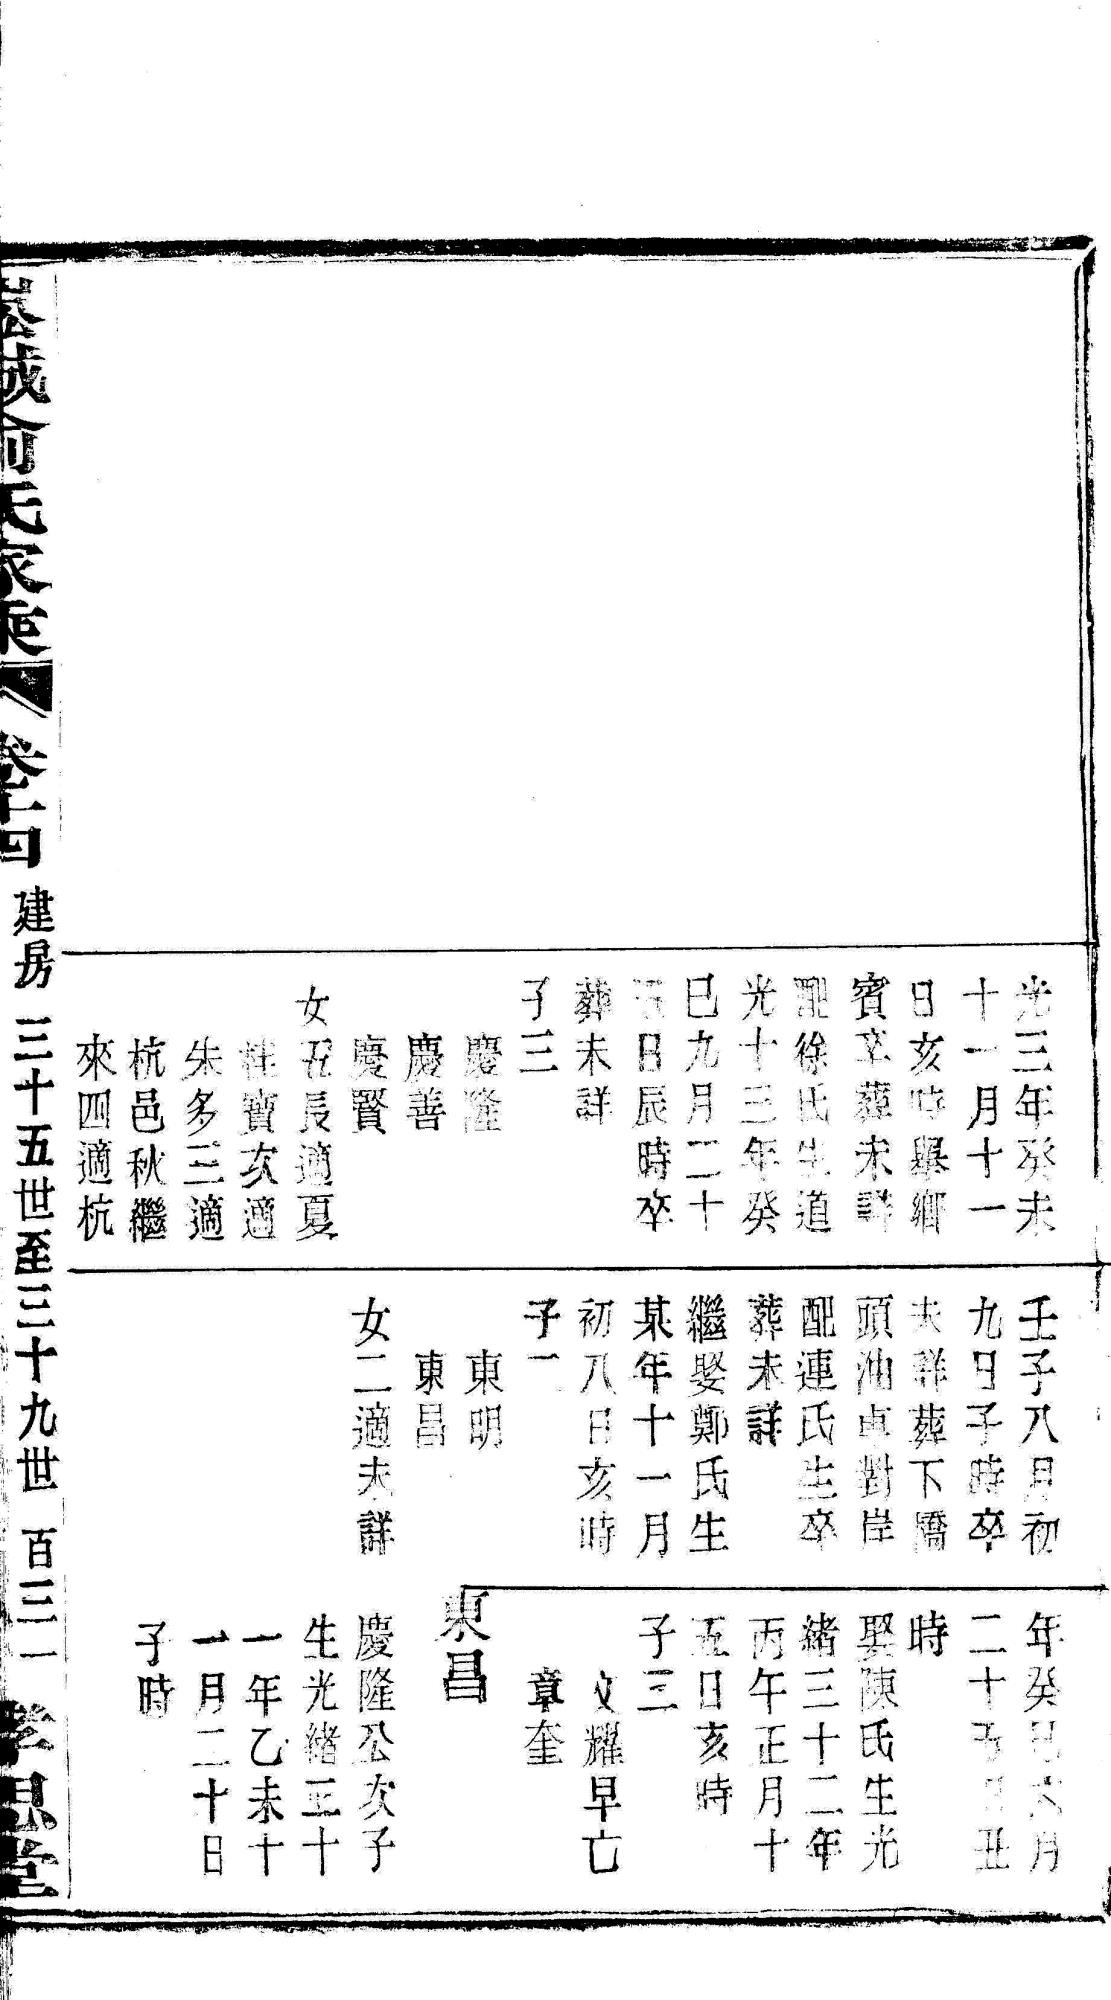 光三年癸未
十一月十一
日亥時舉鄉
賓卒葬未詳
配徐氏生道
光十三年癸
巳九月二十
五日辰時卒
葬未詳
子三
慶隆
慶善
慶賢
女五長適夏
桂寶次適
朱多三適
杭邑秋繼
來四適杭
壬子八月初
九日子時卒
未詳葬下橋
頭油車對岸
配連氏生卒
葬未詳
繼娶鄭氏生
某年十一月
初八日亥時
子二
東明
東昌
女二適未詳
年癸巳六月
二十五日丑
時
娶陳氏生光
緒三十二年
丙午正月十
五日亥時
子三
文耀早亡
章奎
東昌
慶隆公次子
生光緒二十
一年乙未十
一月二十日
子時
俞氏家乘
卷十四
建房 三十五世至三十九世 百三一
孝思堂